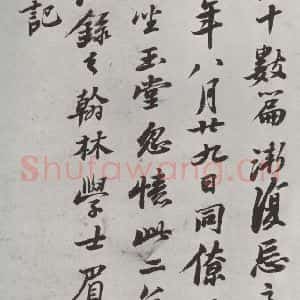 十數篇漸復忘
年八月廿九日同僚
坐玉堂忽憶此二
錄之翰林學士眉
記
Shufawang.Cn